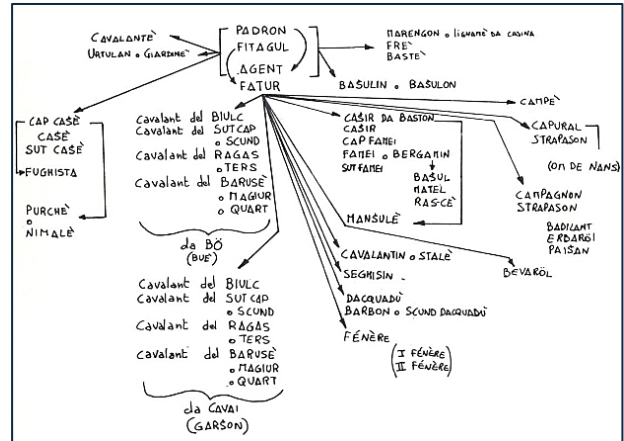 CAVALANTÈ
URTULAN o GIARDINÈ
PADRON
FITAGUL
AGENT
FATUR
MARENGON o LIGNAMÈ DA CASINA
FRÈ
BASTÈ
BASULIN o BASULON
CAP CASÈ
CASÈ
SUT CASÈ
FUGHISTA
PURCHÈ
o
NIMALÈ
Cavalant del BIULC
Cavalant del SUTCAP
o SCUND
Cavalant del RAGAS
o TERS
Cavalant del BARUSÈ
o MAGIUR
o QUART
da BÖ
(BUÈ)
Cavalant del BIULC
Cavalant del SUTCAP
o SCUND
Cavalant del RAGAS
o TERS
Cavalant del BARUSÈ
o MAGIUR
o QUART
da CAVAI
(GARSON)
CASIR DA BASTON
CASIR
CAP FAMEI
FAMEI o BERGAMIN
SUT FAMEI
BASUL
MATEL
RAS-CÈ
MANSULÈ
CAVALANTIN o STALÈ
SEGHISIN
DACQUADÙ
BARBON o SCUND DACQUADÙ
FÉNÈRE
(I FÉNÈRE
II FÉNÈRE)
CAMPÈ
CAPURAL
STRAPASON
(OM DE NANS)
CAMPAGNON
STRAPASON
BADILANT
ERBARÖI
PAISAN
BEVARÖL